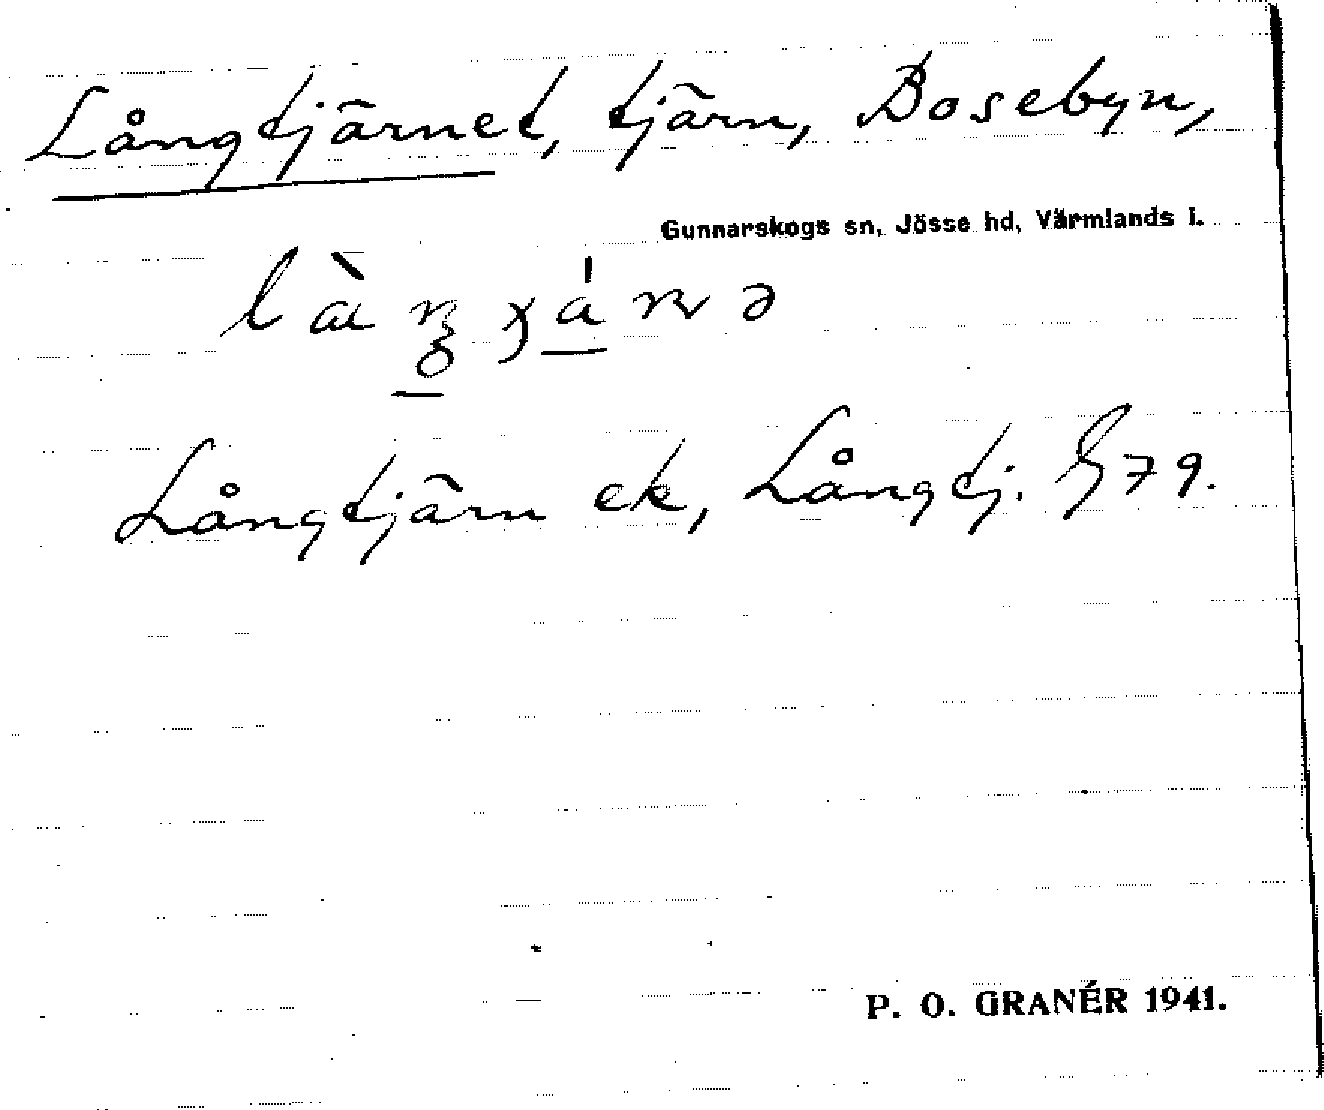 Långtjärnet, tjärn, Bosebyn,
Gunnarskogs sn, Jösse hd, Värmlands l.
Långtjärn ek, Långtj. G79.
P. O. GRANÉR 1941.